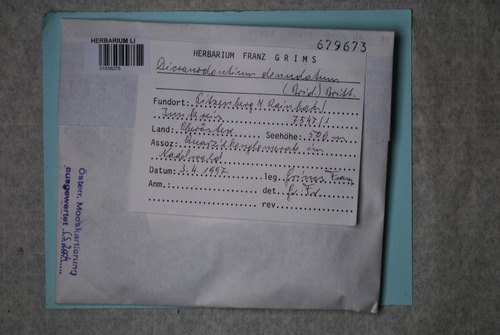 HERBARIUM LI
679673
HERBARIUM FRANZ GRIMS
Dicranodontium denudatum
(Brid.) Britt.
Fundort: Pitzenberg N Rainbach/
Innkreis 7547/1
Land: Oberöster. Seehöhe: 500 m
Assoz: Quarzitkonglomerat im
Nadelwald
Datum: 3.4.1997 leg. Grims Franz
Anm.: det. Gr. Fr.
rev.
Österr. Mooskartierung
ausgewertet